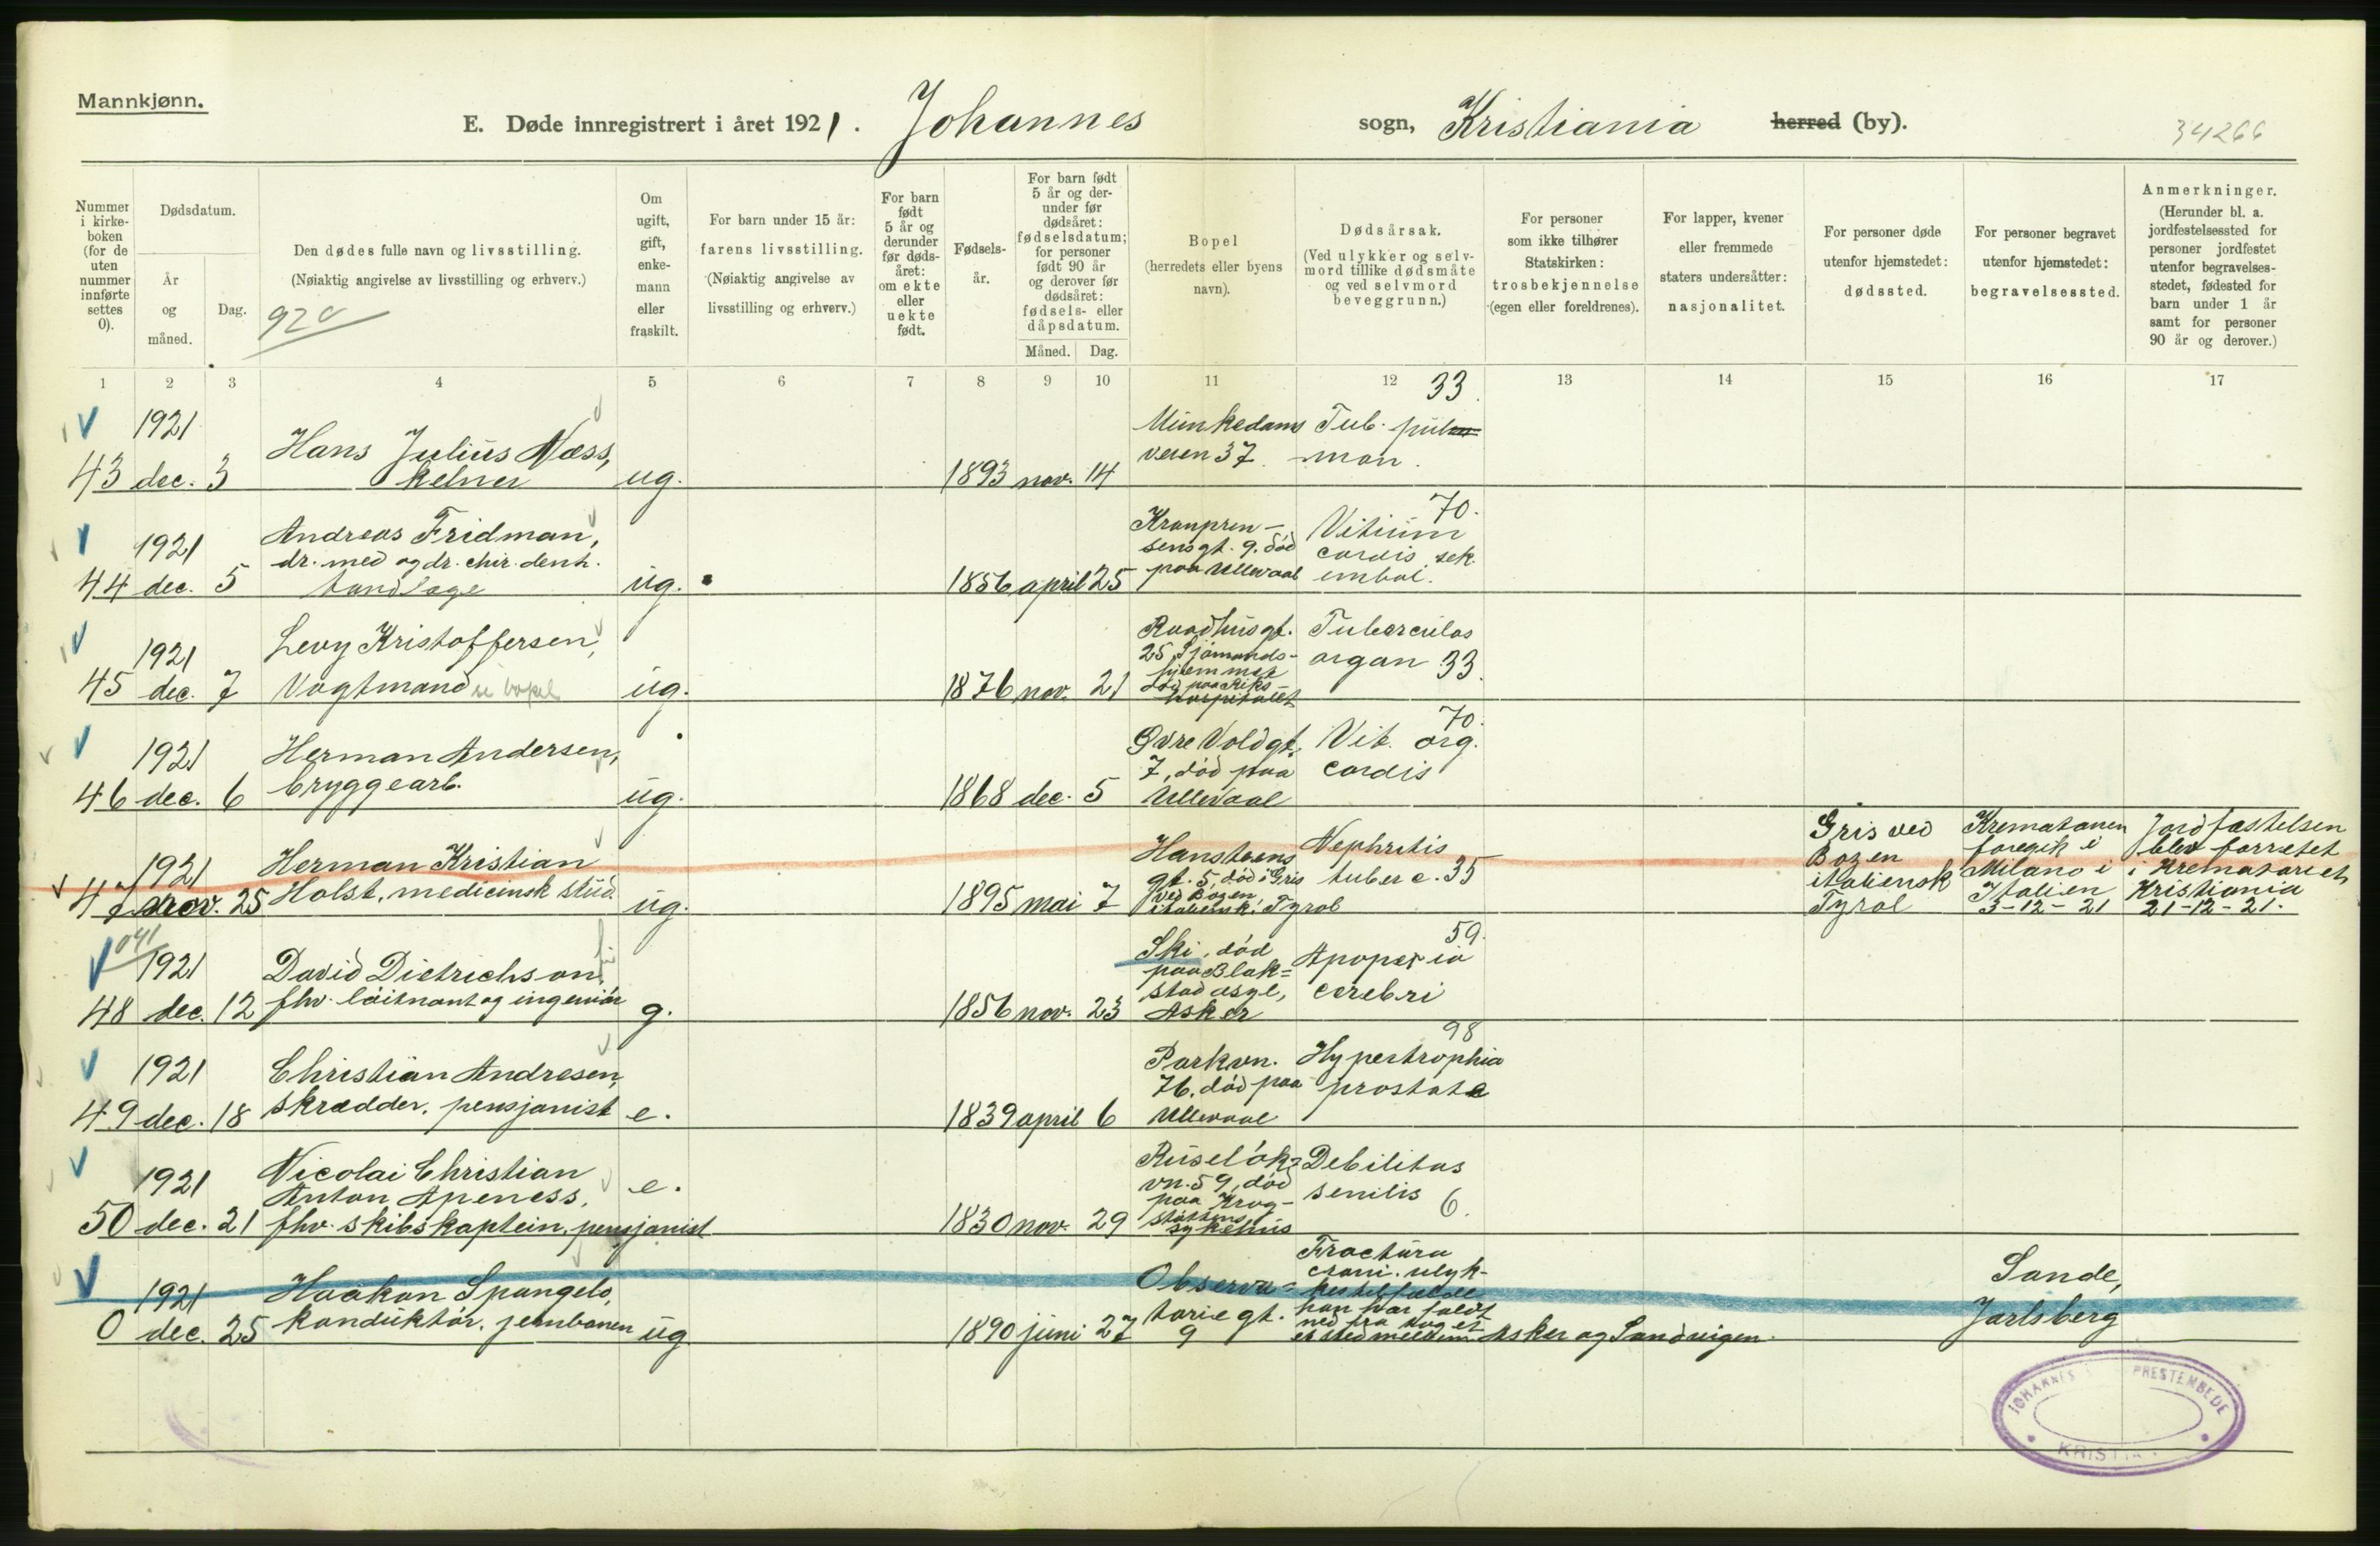 Mannkjønn.
E. Døde innregistrert i året 1921. Johannes sogn, Kristiania herred (by).
34266
Nummer i kirkeboken (for de uten nummer innførte settes 0).
Dødsdatum.
År og måned.
Dag.
Den dødes fulle navn og livsstilling.
(Nøiaktig angivelse av livsstilling og erhverv.)
Om ugift, gift, enkemann eller fraskilt.
For barn under 15 år:
farens livsstilling.
(Nøiaktig angivelse av livsstilling og erhverv.)
For barn født 5 år og derunder før dødsåret: om ekte eller uekte født.
Fødselsår.
For barn født 5 år og derunder før dødsåret: fødselsdatum; for personer født 90 år og derover før dødsåret: fødsels- eller dåpsdatum.
Måned. Dag.
Bopel
(herredets eller byens navn).
Dødsårsak.
(Ved ulykker og selvmord tillike dødsmåte og ved selvmord beveggrunn.)
For personer som ikke tilhører Statskirken: trosbekjennelse (egen eller foreldrenes).
For lapper, kvener eller fremmede staters undersåtter: nasjonalitet.
For personer døde utenfor hjemstedet: dødssted.
For personer begravet utenfor hjemstedet: begravelsessted.
Anmerkninger.
(Herunder bl. a. jordfestelsessted for personer jordfestet utenfor begravelsesstedet, fødested for barn under 1 år samt for personer 90 år og derover.)
1 2 3 4 5 6 7 8 9 10 11 12 13 14 15 16 17
1921
43 dec. 3
Hans Julius Næss,
kelner
ug.
1893 nov. 14
Munkedams
veien 37.
33
Tub. pul
mon.
1921
44 dec. 5
Andreas Fridman,
dr. med og dr. chir. dent.
tandlæge
ug.
1856 april 25
Kronprin-
sensgt. 9. død
paa Ullevaal
70.
Vitium
cordis sek.
emboi.
1921
45 dec. 7
Levy Kristoffersen,
Vagtmand se bopel
ug.
1876 nov. 21
Raadhusgt.
25, Sjømands-
hjemmet
død paa Riks-
hospitalet
Tuberculos
organ 33.
1921
46 dec. 6
Herman Andersen,
bryggearb.
ug.
1868 dec. 5
Øvre Voldgt.
7, død paa
Ullevaal
70.
Vit. org.
cordis
1921
47 nov. 25
Herman Kristian
Holst, medicinsk stud.
ug.
1895 mai 7
Hansteens
gt. 5, død i Gris
ved Bozen
italiensk Tyrol
Nephritis
tuberc. 35
Gris ved
Bozen
italiensk
Tyrol
Krematonen
foregik i
Milano i
Italien
3-12-21
Jordfæstelsen
blev forretet
i Krematoriet
Kristiania
21-12-21.
1921
48 dec. 12
David Dietrichson,
fhv. løitnant og ingeniør
g.
1856 nov. 23
Ski, død
paa Blak=
stad asyl,
Asker
59.
Apopexia
cerebri
1921
49 dec. 18
Christian Andresen,
skrædder, pensjonist
e.
1839 april 6
Parkvn.
76, død paa
Ullevaal
98
Hypertrophia
prostate
1921
50 dec. 21
Nicolai Christian
Anton Apeness,
fhv. skibskaptein, pensjonist
e.
1830 nov. 29
Ruseløk=
vn. 59, død
paa Krog-
støttens
sykehus
Debilitas
senilis 6.
1921
0 dec. 25
Haakon Spangelo,
konduktør, jernbanen
ug
1890 juni 27
Observa=
toriegt.
9
Fractura
crani. ulyk-
kestilfælde
han har faldt
ned fra tog et
et sted mellem Asker og Sandvigen.
Sande,
Jarlsberg
JOHANNES PRESTEMBEDE